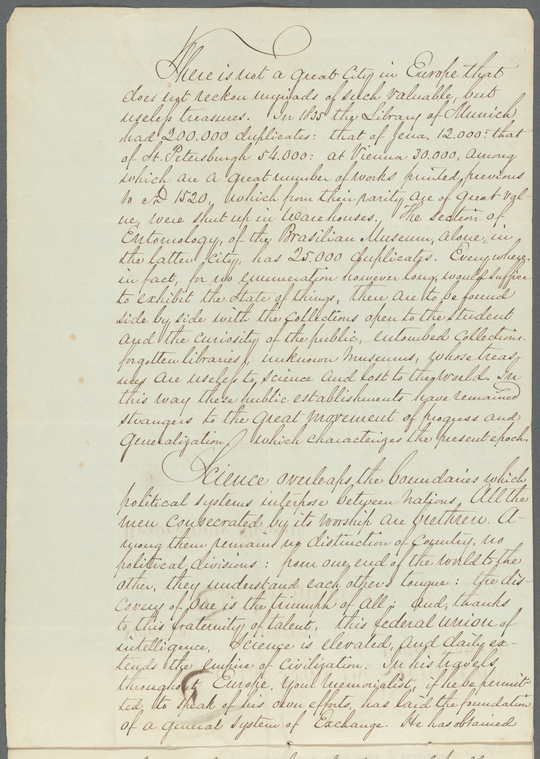 There is not a great City in Europe that
does not reckon myriads of such valuable, but
useless treasures. In 1835 the Library of Munich
had 200.000 duplicates: that of Jena, 12.000: that
of St. Petersburgh 54.000: at Vienna 30.000, among
which are a great number of works printed previous
to AD 1520, which from their rarity are of great val-
ue, were shut up in warehouses. The section of
Entomology, of the Brasilian Museum, alone, in
the latter City, has 25.000 duplicates. Everywhere,
in fact, for no enumeration however long, would suffice
to exhibit the state of things, there are to be found
side by side with the Collections open to the Student
and the curiosity of the public, entombed Collections.
forgotten libraries, unknown Museums, whose treas-
ures are useless to, science and lost to the world. In
this way these public establishments have remained
strangers to the great movement of progress and
generalization, which characterizes the present epoch.
Science overleaps, the boundaries which
political systems interpose between Nations, All the
men consecrated by its worship are brethren. A-
mong them remain no distinction of Country, no
political, divisions: from one, end of the world to the
other, they understand each other's tongue: the dis-
covery of one is the triumph of all; and, thanks
to, this fraternity of talent, this federal union of
intelligence, Science is elevated, and daily ex-
tends the empire of Civilization. In his travels,
throughout Europe, Your Memorialist, if he be permit-
ted, to speak of his own efforts, has laid the foundation
of a general system of Exchange. He has obtained